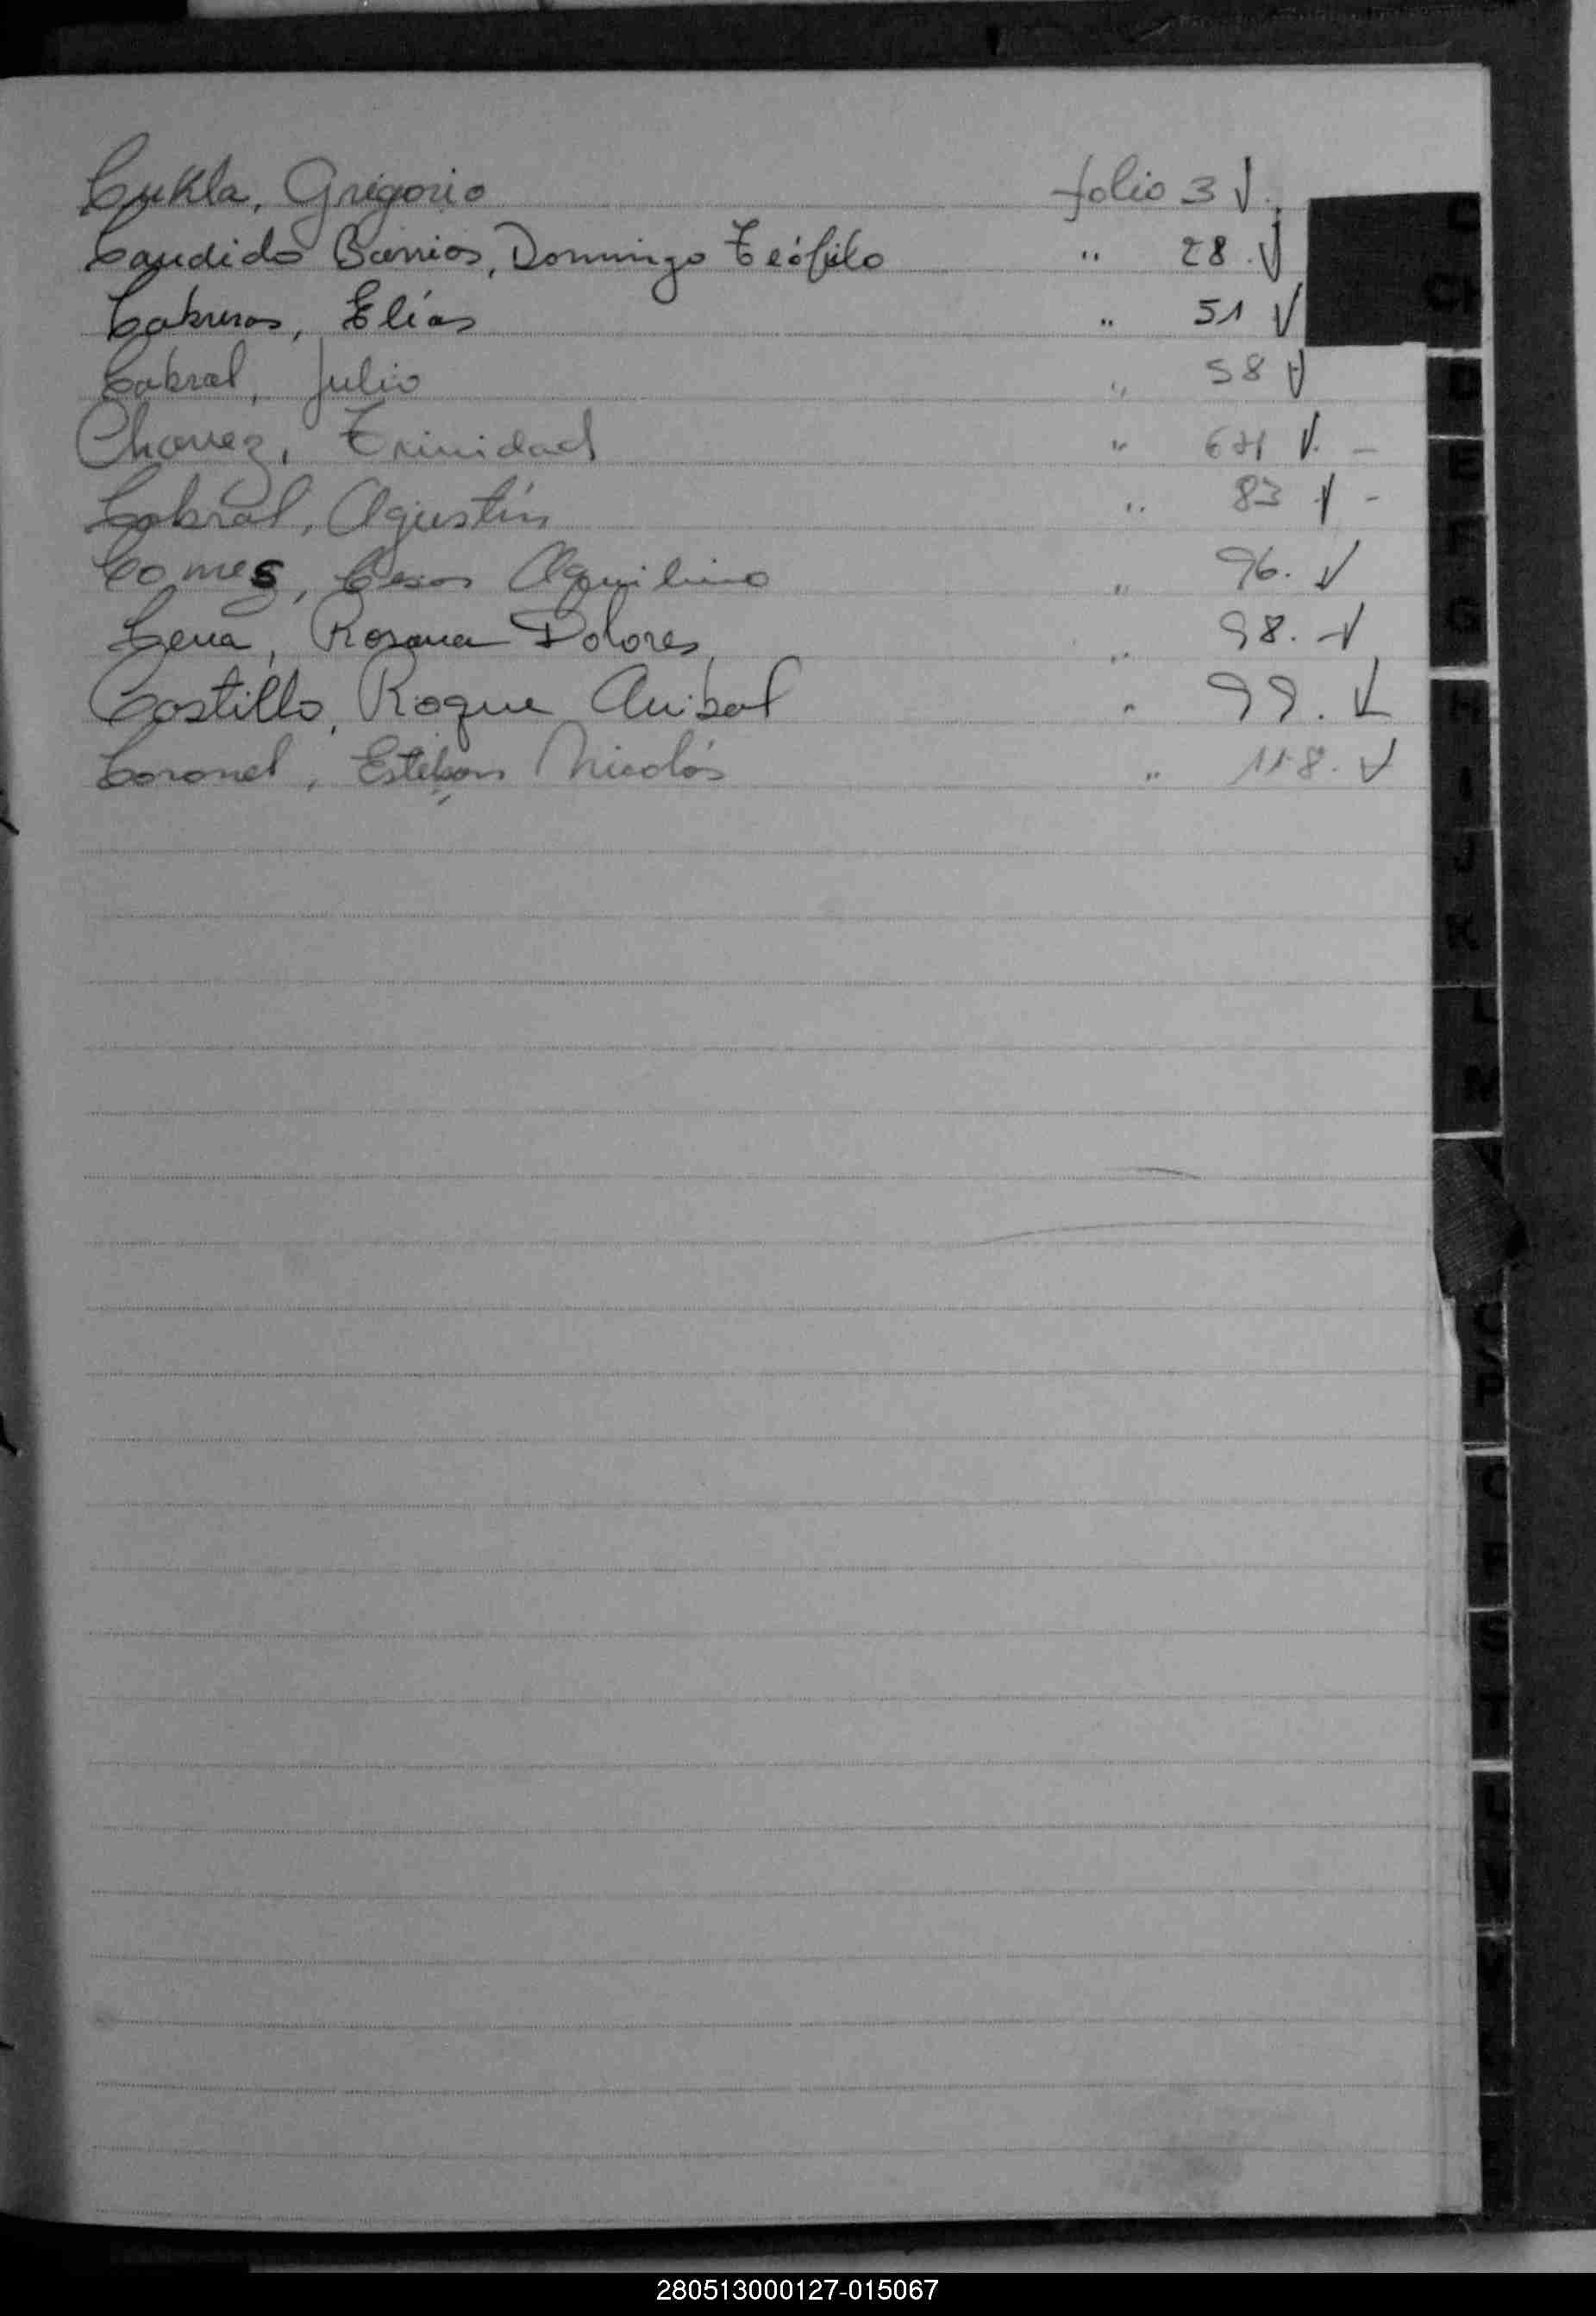 Cukla, Gregorio folio 3 √.
Candido Barrios, Domingo Teófilo " 28. √
Cabreras, Elías " 51 √
Cabral, Julio " 58 √
Chavez, Trinidad " √. -
Cabral, Agustín " 83 √ -
Comes, Cesar Aquilino " 96. √
Cena, Rosana Dolores " 98. √
Castillo, Roque Anibal " 99. √
Coronel, Esteban Nicolás " 118. √
C
CH
D
E
F
G
H
I
J
K
L
M
P
R
S
T
280513000127-015067